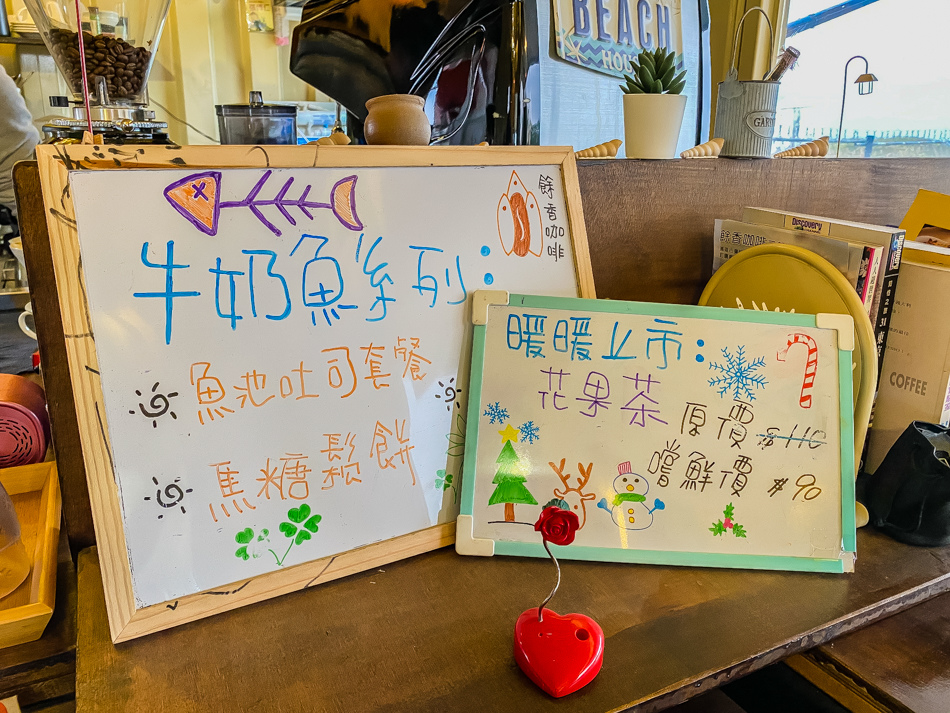 BEACH
HOU
GARDEN
餘香咖啡
牛奶魚系列：
魚池吐司套餐
馬糖鬆餅
暖暖上市：
花果茶
原價 $110
嚐鮮價 $90
Discovery
COFFEE